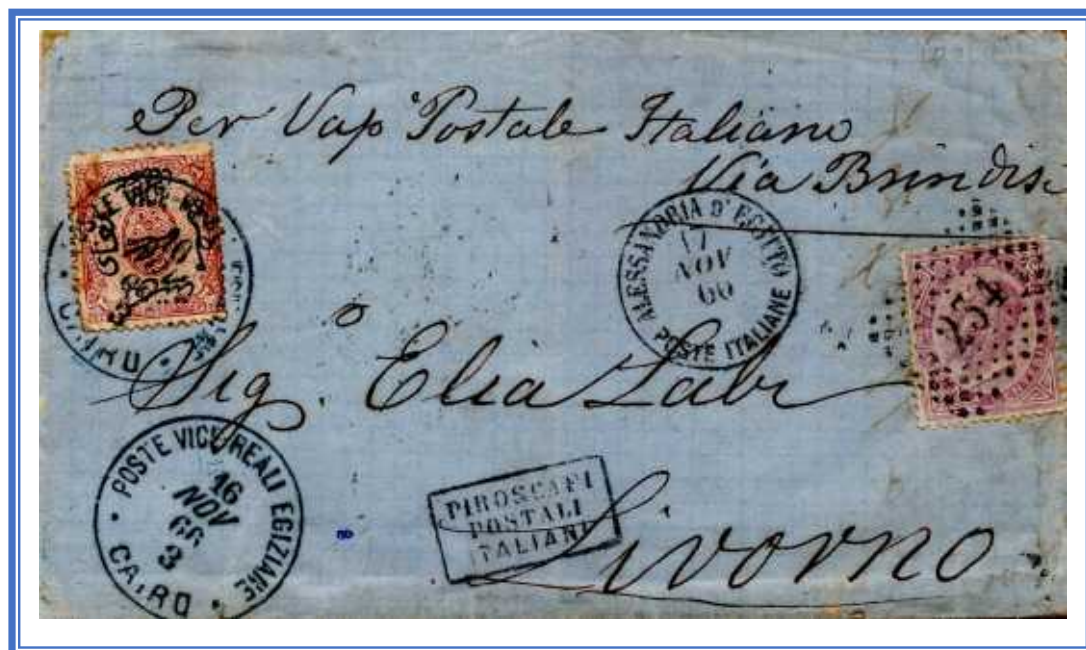 Per Vap° Postale Italiano
Via Brindisi
POSTE VICE REALI
CAIRO
ALESSANDRIA D'EGITTO
17
NOV
66
POSTE ITALIANE
234
Sig. Elia Labi
POSTE VICE REALI EGIZIANE
16
NOV
66
3
CAIRO
PIROSCAFI
POSTALI
ITALIANI
Livorno